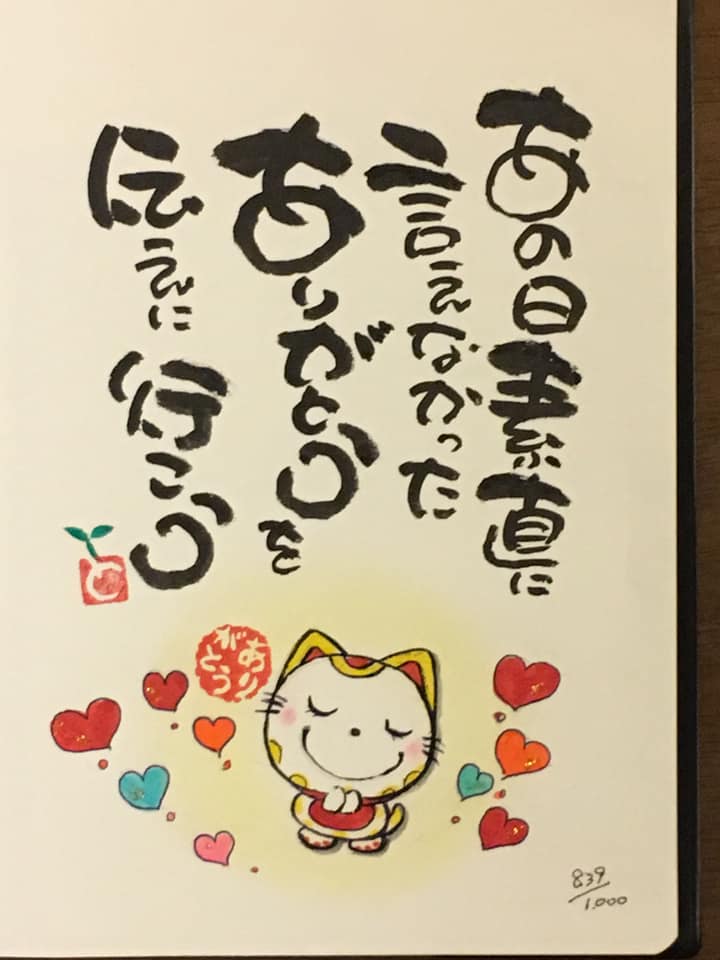 あの日素直に
言えなかった
ありがとうを
伝えに行こう
と
ありがとう
839/1.000